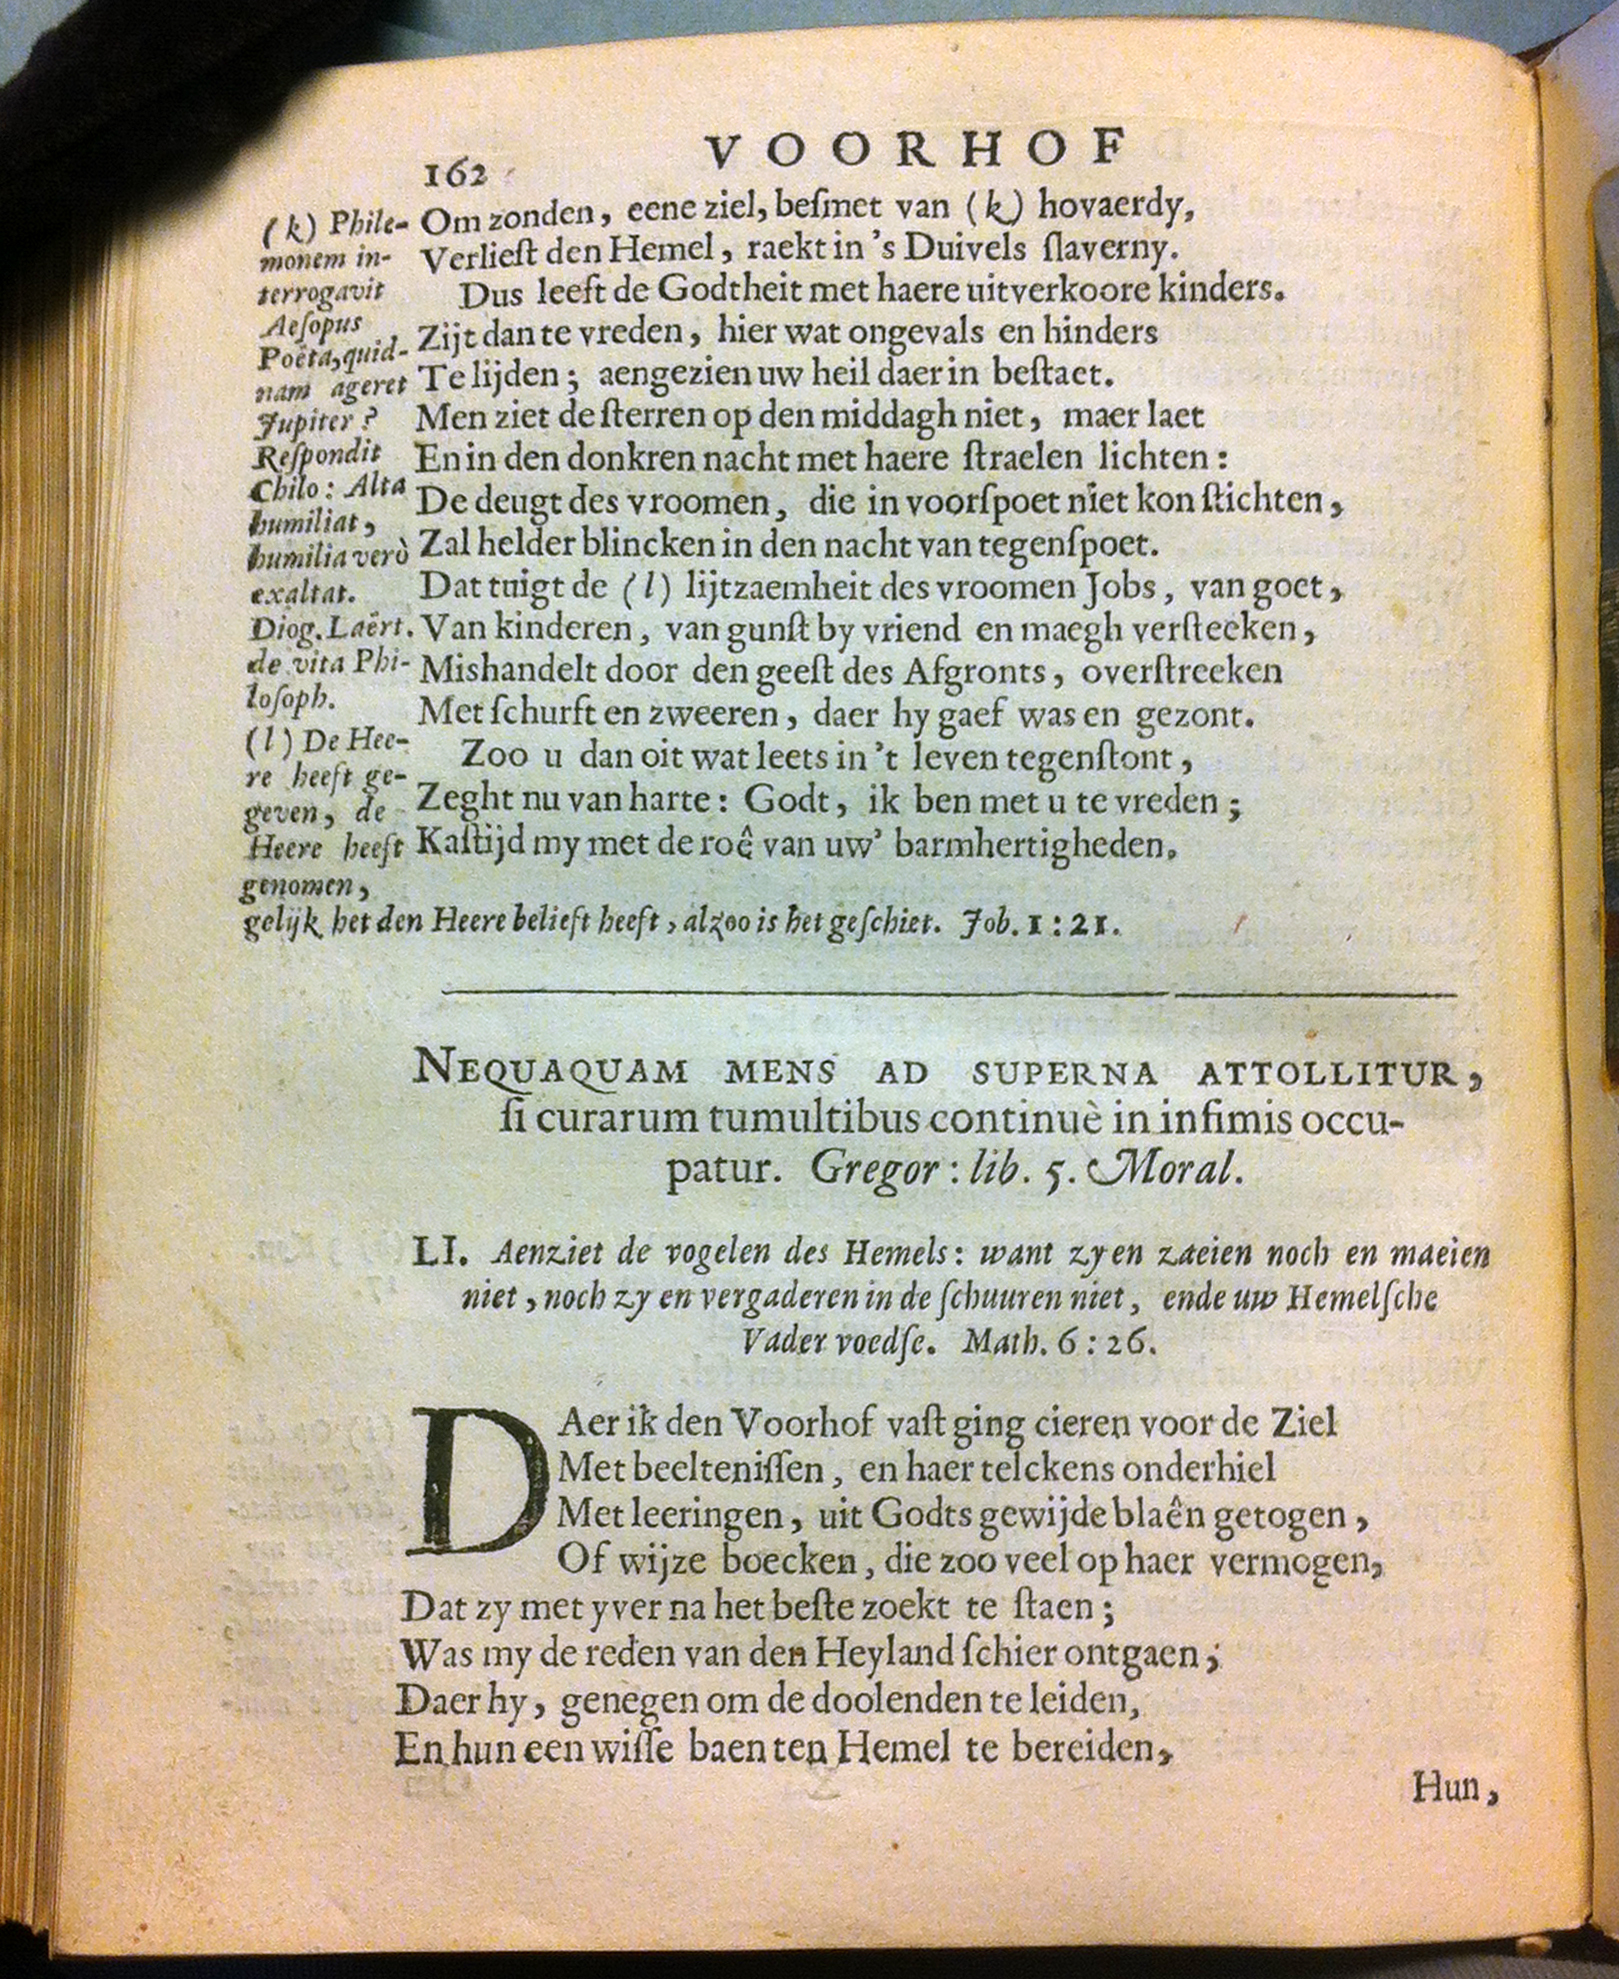 VOORHOF
162
Om zonden, eene ziel, beſmet van (k) hovaerdy,
Verlieſt den Hemel, raekt in 's Duivels ſlaverny.
Dus leeft de Godtheit met haere uitverkoore kinders.
Zijt dan te vreden, hier wat ongevals en hinders
Te lijden; aengezien uw heil daer in beſtaet.
Men ziet de ſterren op den middagh niet, maer laet
En in den donkren nacht met haere ſtraelen lichten:
De deugt des vroomen, die in voorſpoet niet kon ſtichten,
Zal helder blincken in den nacht van tegenſpoet.
Dat tuigt de (l) lijtzaemheit des vroomen Jobs, van goet,
Van kinderen, van gunſt by vriend en maegh verſteeken,
Mishandelt door den geeſt des Afgronts, overſtreeken
Met ſchurft en zweeren, daer hy gaef was en gezont.
Zoo u dan oit wat leets in 't leven tegenſtont,
Zeght nu van harte: Godt, ik ben met u te vreden;
Kaſtijd my met de roê van uw' barmhertigheden.
(k) Phile-
monem in-
terrogavit
Aeſopus
Poëta, quid-
nam ageret
Jupiter?
Reſpondit
Chilo: Alta
humiliat,
humilia verò
exaltat.
Diog. Laërt.
de vita Phi-
loſoph.
(l) De Hee-
re heeft ge-
geven, de
Heere heeft
genomen,
gelijk het den Heere belieft heeft, alzoo is het geſchiet. Job. 1:21.
NEQUAQUAM MENS AD SUPERNA ATTOLLITUR,
ſi curarum tumultibus continuè in infimis occu-
patur. Gregor: lib. 5. Moral.
LI. Aenziet de vogelen des Hemels: want zy en zaeien noch en maeien
niet, noch zy en vergaderen in de ſchuuren niet, ende uw Hemelſche
Vader voedſe. Math. 6:26.
DAer ik den Voorhof vaſt ging cieren voor de Ziel
Met beelteniſſen, en haer telckens onderhiel
Met leeringen, uit Godts gewijde blaên getogen,
Of wijze boecken, die zoo veel op haer vermogen,
Dat zy met yver na het beſte zoekt te ſtaen;
Was my de reden van den Heyland ſchier ontgaen;
Daer hy, genegen om de doolenden te leiden,
En hun een wiſſe baen ten Hemel te bereiden,
Hun,